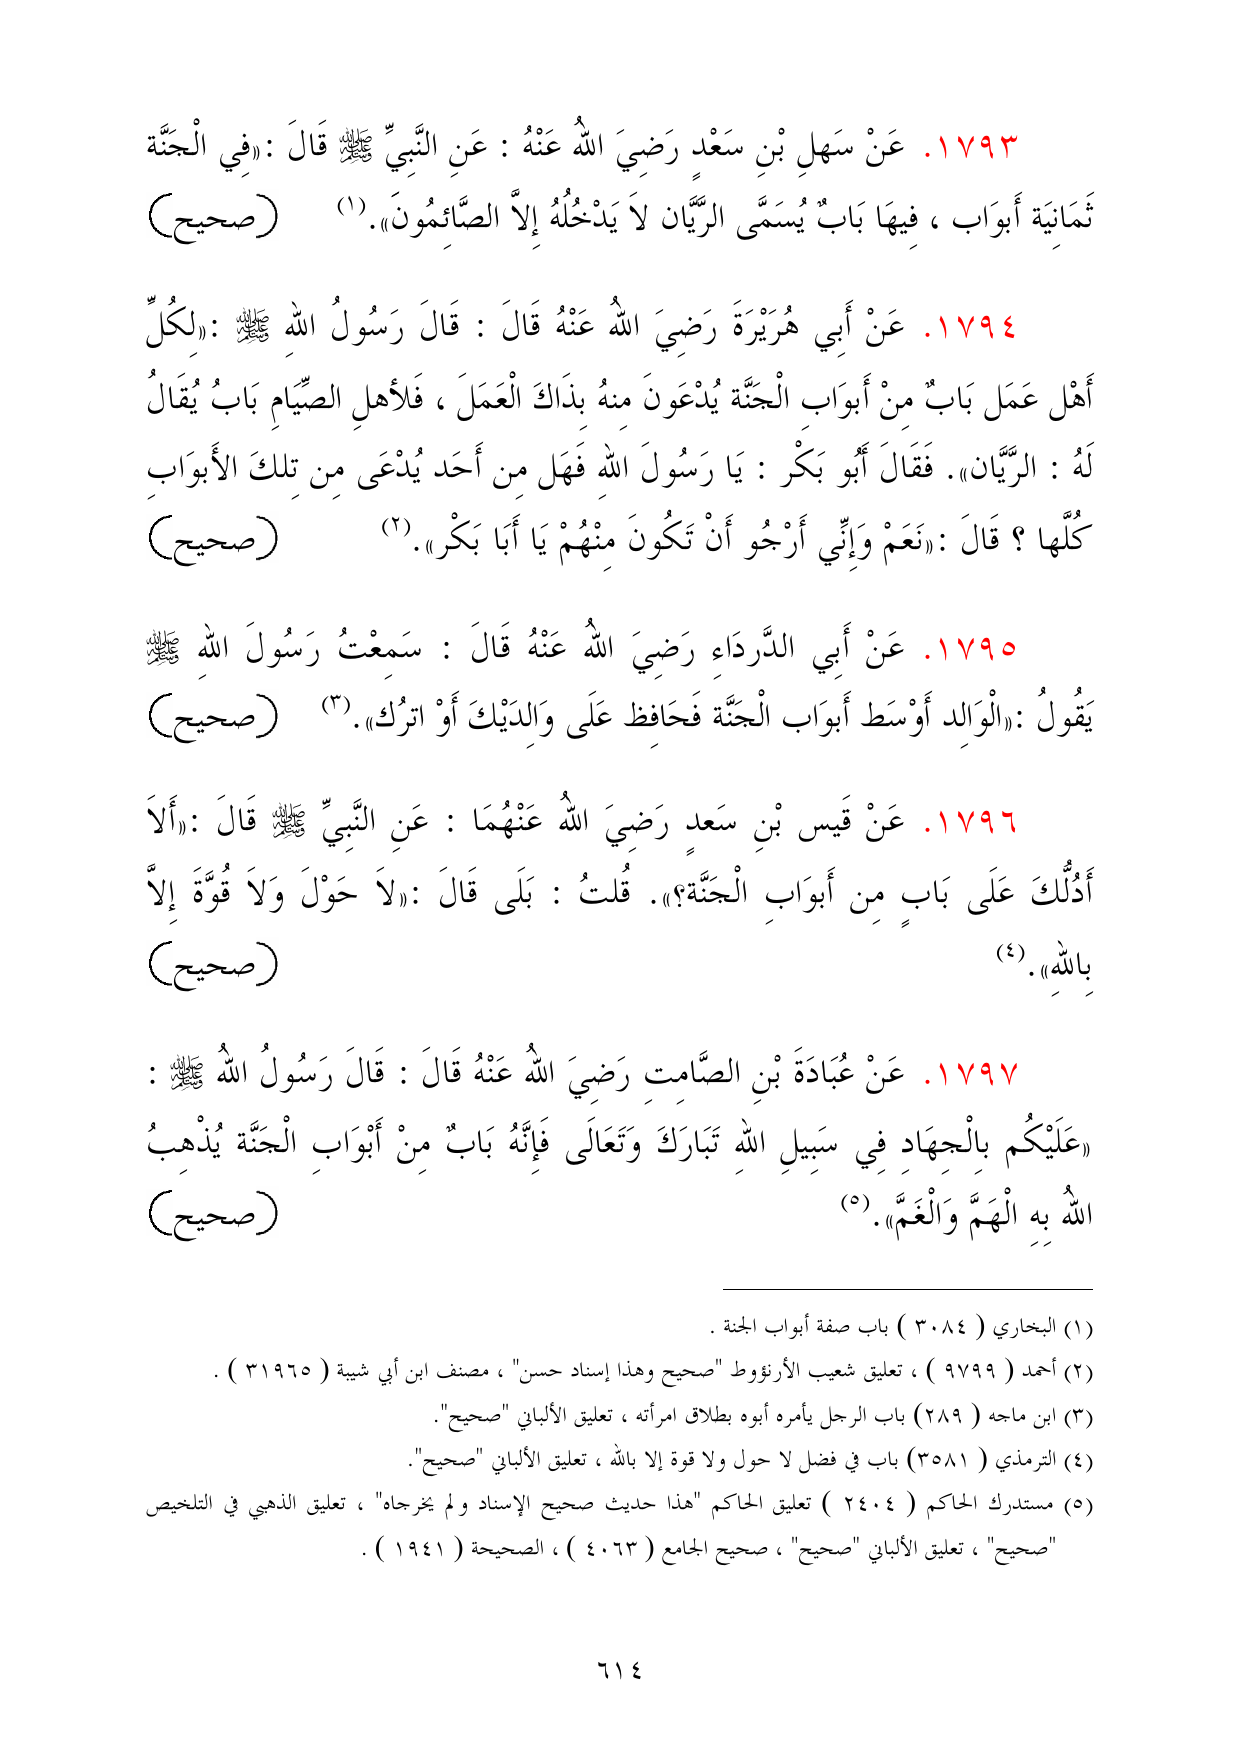 ١٧٩٣. عَنْ سَهلِ بْنِ سَعْدٍ رَضِيَ اللهُ عَنْهُ : عَنِ النَّبِيِّ ﷺ قَالَ :«فِي الْجَنَّة
ثَمَانِيَة أَبوَاب ، فِيهَا بَابٌ يُسَمَّى الرَّيَّان لاَ يَدْخُلُهُ إِلاَّ الصَّائِمُونَ».(١) (صحيح)
١٧٩٤. عَنْ أَبِي هُرَيْرَةَ رَضِيَ اللهُ عَنْهُ قَالَ : قَالَ رَسُولُ اللهِ ﷺ :«لِكُلِّ
أَهْل عَمَل بَابٌ مِنْ أَبوَابِ الْجَنَّة يُدْعَونَ مِنهُ بِذَاكَ الْعَمَلَ ، فَلأهلِ الصِّيَامِ بَابُ يُقَالُ
لَهُ : الرَّيَّان». فَقَالَ أَبُو بَكْر : يَا رَسُولَ اللهِ فَهَل مِن أَحَد يُدْعَى مِن تِلكَ الأَبوَابِ
كُلَّها ؟ قَالَ :«نَعَمْ وَإِنِّي أَرْجُو أَنْ تَكُونَ مِنْهُمْ يَا أَبَا بَكْر».(٢) (صحيح)
١٧٩٥. عَنْ أَبِي الدَّردَاءِ رَضِيَ اللهُ عَنْهُ قَالَ : سَمِعْتُ رَسُولَ اللهِ ﷺ
يَقُولُ :«الْوَالِد أَوْسَط أَبوَاب الْجَنَّة فَحَافِظ عَلَى وَالِدَيْكَ أَوْ اترُك».(٣) (صحيح)
١٧٩٦. عَنْ قَيس بْنِ سَعدٍ رَضِيَ اللهُ عَنْهُمَا : عَنِ النَّبِيِّ ﷺ قَالَ :«أَلاَ
أَدُلُّكَ عَلَى بَابٍ مِن أَبوَابِ الْجَنَّة؟». قُلتُ : بَلَى قَالَ :«لاَ حَوْلَ وَلاَ قُوَّةَ إِلاَّ
بِاللهِ».(٤) (صحيح)
١٧٩٧. عَنْ عُبَادَةَ بْنِ الصَّامِتِ رَضِيَ اللهُ عَنْهُ قَالَ : قَالَ رَسُولُ اللهُ ﷺ :
«عَلَيْكُم بِالْجِهَادِ فِي سَبِيلِ اللهِ تَبَارَكَ وَتَعَالَى فَإِنَّهُ بَابٌ مِنْ أَبْوَابِ الْجَنَّة يُذْهِبُ
اللهُ بِهِ الْهَمَّ وَالْغَمَّ».(٥) (صحيح)
(١) البخاري ( ٣٠٨٤ ) باب صفة أبواب الجنة .
(٢) أحمد ( ٩٧٩٩ ) ، تعليق شعيب الأرنؤوط "صحيح وهذا إسناد حسن" ، مصنف ابن أبي شيبة ( ٣١٩٦٥ ) .
(٣) ابن ماجه ( ٢٨٩) باب الرجل يأمره أبوه بطلاق امرأته ، تعليق الألباني "صحيح".
(٤) الترمذي ( ٣٥٨١) باب في فضل لا حول ولا قوة إلا بالله ، تعليق الألباني "صحيح".
(٥) مستدرك الحاكم ( ٢٤٠٤ ) تعليق الحاكم "هذا حديث صحيح الإسناد ولم يخرجاه" ، تعليق الذهبي في التلخيص
"صحيح" ، تعليق الألباني "صحيح" ، صحيح الجامع ( ٤٠٦٣ ) ، الصحيحة ( ١٩٤١ ) .
٦١٤